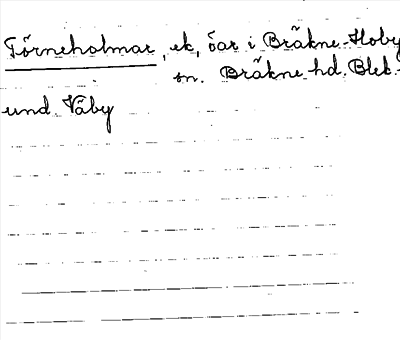 Törneholmar, ek, öar i Bräkne-Hoby
sn. Bräkne hd. Blek.
und Väby